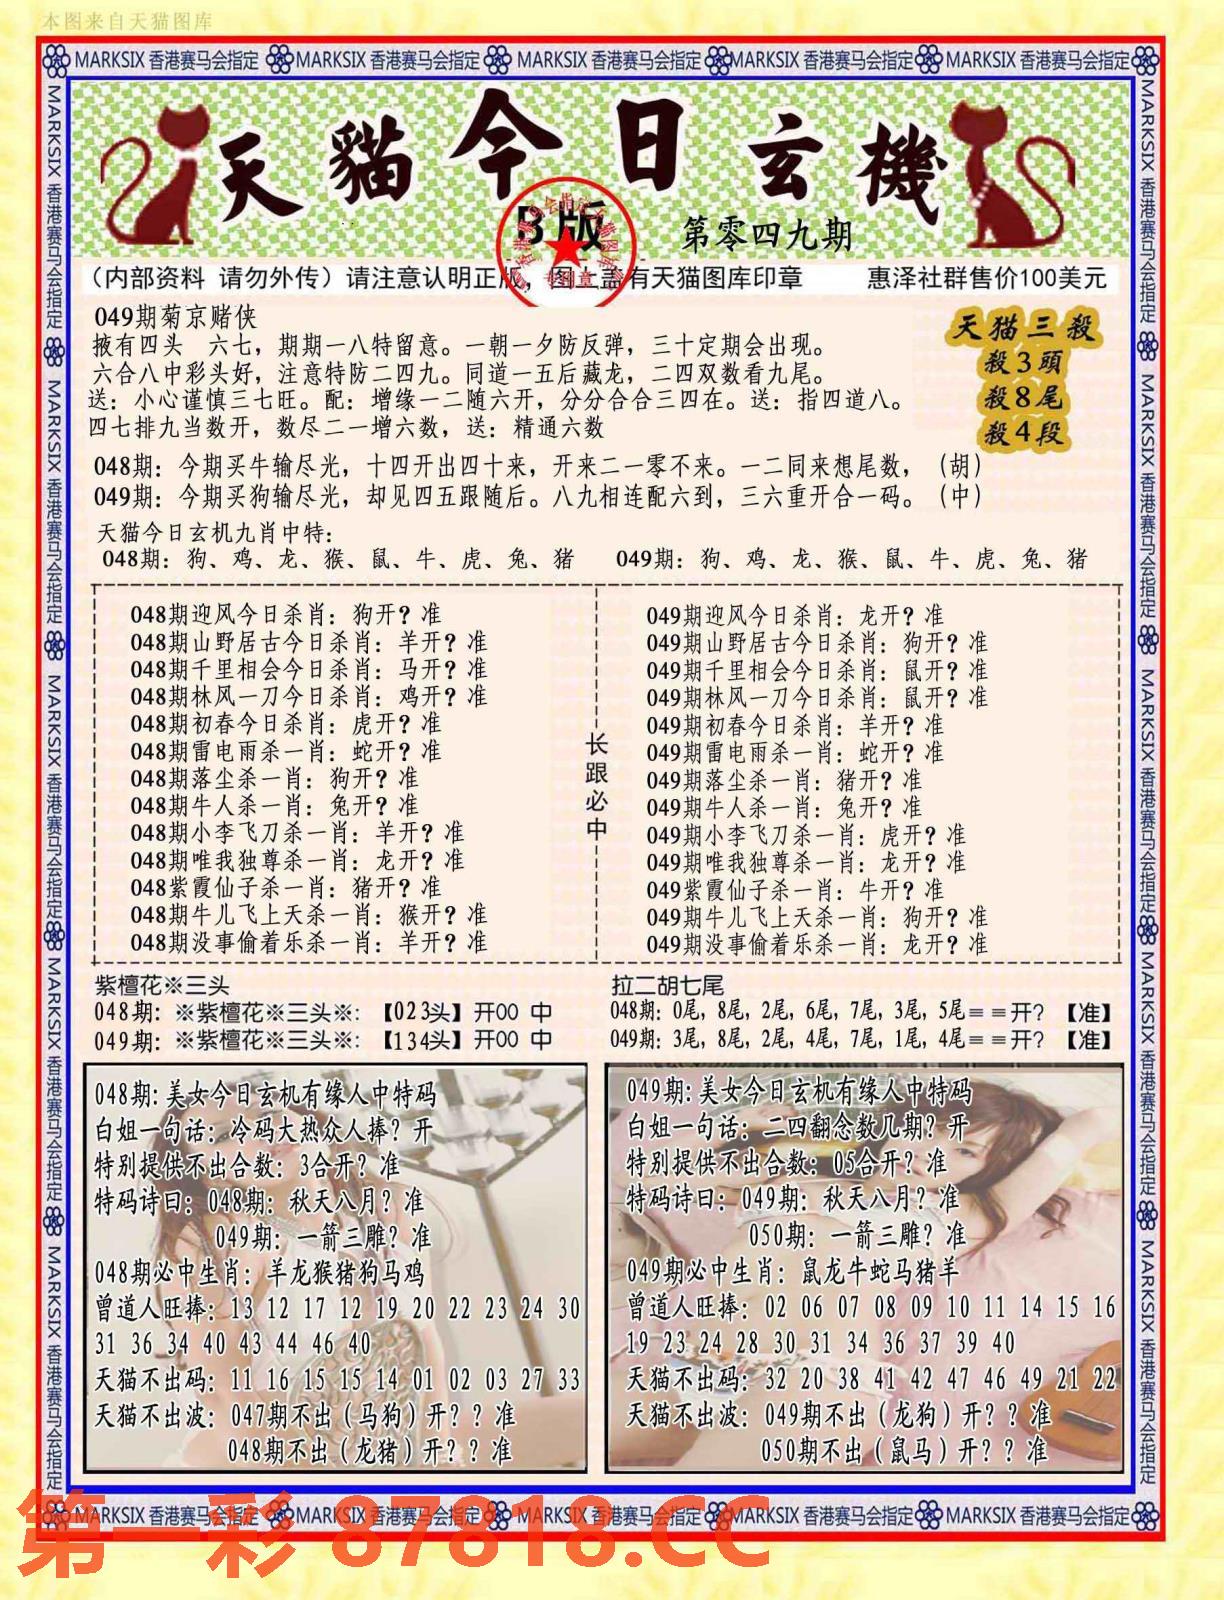 本图来自天猫图库
MARKSIX 香港赛马会指定 MARKSIX 香港赛马会指定 MARKSIX 香港赛马会指定 MARKSIX 香港赛马会指定 MARKSIX 香港赛马会指定
天貓今日玄機
B版
第零四九期
（内部资料 请勿外传）请注意认明正版，图上盖有天猫图库印章 惠泽社群售价100美元
049期菊京赌侠
掖有四头 六七，期期一八特留意。一朝一夕防反弹，三十定期会出现。
六合八中彩头好，注意特防二四九。同道一五后藏龙，二四双数看九尾。
送：小心谨慎三七旺。配：增缘一二随六开，分分合合三四在。送：指四道八。
四七排九当数开，数尽二一增六数，送：精通六数
天猫三殺
殺3頭
殺8尾
殺4段
048期：今期买牛输尽光，十四开出四十来，开来二一零不来。一二同来想尾数，（胡）
049期：今期买狗输尽光，却见四五跟随后。八九相连配六到，三六重开合一码。（中）
天猫今日玄机九肖中特：
048期：狗、鸡、龙、猴、鼠、牛、虎、兔、猪 049期：狗、鸡、龙、猴、鼠、牛、虎、兔、猪
048期迎风今日杀肖：狗开？准
048期山野居古今日杀肖：羊开？准
048期千里相会今日杀肖：马开？准
048期林风一刀今日杀肖：鸡开？准
048期初春今日杀肖：虎开？准
048期雷电雨杀一肖：蛇开？准
048期落尘杀一肖：狗开？准
048期牛人杀一肖：兔开？准
048期小李飞刀杀一肖：羊开？准
048期唯我独尊杀一肖：龙开？准
048紫霞仙子杀一肖：猪开？准
048期牛儿飞上天杀一肖：猴开？准
048期没事偷着乐杀一肖：羊开？准
长跟必中
049期迎风今日杀肖：龙开？准
049期山野居古今日杀肖：狗开？准
049期千里相会今日杀肖：鼠开？准
049期林风一刀今日杀肖：鼠开？准
049期初春今日杀肖：羊开？准
049期雷电雨杀一肖：蛇开？准
049期落尘杀一肖：猪开？准
049期牛人杀一肖：兔开？准
049期小李飞刀杀一肖：虎开？准
049期唯我独尊杀一肖：龙开？准
049紫霞仙子杀一肖：牛开？准
049期牛儿飞上天杀一肖：狗开？准
049期没事偷着乐杀一肖：龙开？准
紫檀花※三头
048期：※紫檀花※三头※：【023头】开00 中
049期：※紫檀花※三头※：【134头】开00 中
拉二胡七尾
048期：0尾，8尾，2尾，6尾，7尾，3尾，5尾＝＝开？【准】
049期：3尾，8尾，2尾，4尾，7尾，1尾，4尾＝＝开？【准】
048期：美女今日玄机有缘人中特码
白姐一句话：冷码大热众人捧？开
特别提供不出合数：3合开？准
特码诗曰：048期：秋天八月？准
049期：一箭三雕？准
048期必中生肖：羊龙猴猪狗马鸡
曾道人旺捧：13 12 17 12 19 20 22 23 24 30
31 36 34 40 43 44 46 40
天猫不出码：11 16 15 15 14 01 02 03 27 33
天猫不出波：047期不出（马狗）开？？准
048期不出（龙猪）开？？准
049期：美女今日玄机有缘人中特码
白姐一句话：二四翻念数几期？开
特别提供不出合数：05合开？准
特码诗曰：049期：秋天八月？准
050期：一箭三雕？准
049期必中生肖：鼠龙牛蛇马猪羊
曾道人旺捧：02 06 07 08 09 10 11 14 15 16
19 23 24 28 30 31 34 36 37 39 40
天猫不出码：32 20 38 41 42 47 46 49 21 22
天猫不出波：049期不出（龙狗）开？？准
050期不出（鼠马）开？？准
MARKSIX 香港赛马会指定 MARKSIX 香港赛马会指定 MARKSIX 香港赛马会指定 MARKSIX 香港赛马会指定 MARKSIX 香港赛马会指定
第一彩 87818.CC
MARKSIX 香港赛马会指定 MARKSIX 香港赛马会指定 MARKSIX 香港赛马会指定 MARKSIX 香港赛马会指定 MARKSIX 香港赛马会指定
MARKSIX 香港赛马会指定 MARKSIX 香港赛马会指定 MARKSIX 香港赛马会指定 MARKSIX 香港赛马会指定 MARKSIX 香港赛马会指定